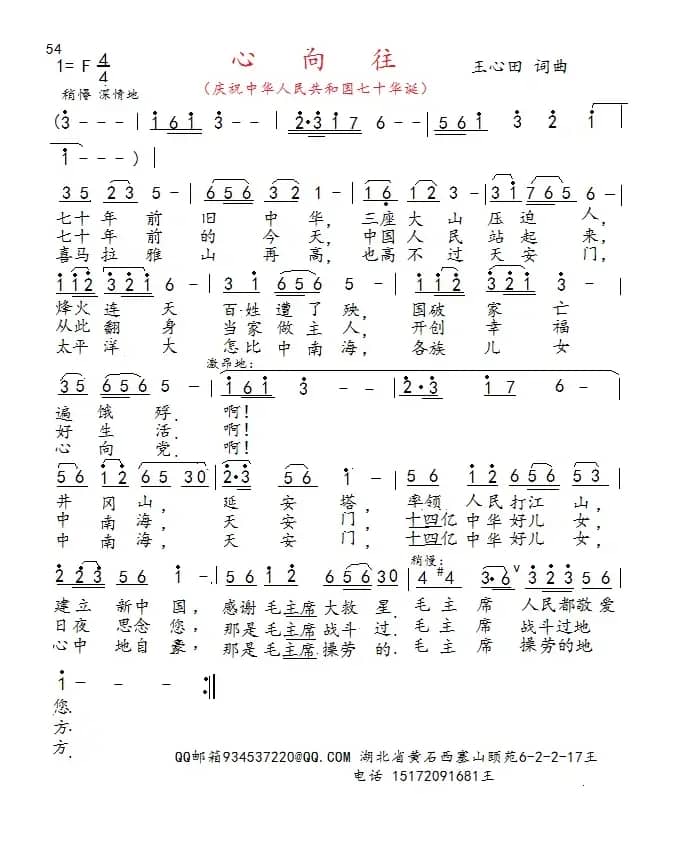 54
1= F 4/4
心 向 往
王心田 词曲
稍慢 深情地
（庆祝中华人民共和国七十华诞）
(3 - - - | 1 6 1 3 - | 2·3 1 7 6 - | 5 6 1 3 2 1 |
1 - - - ) |
3 5 2 3 5 - | 6 5 6 3 2 1 - | 1 6 1 2 3 - | 3 1 7 6 5 6 - |
七十年前旧中华，三座大山压迫人，
七十年前的今天，中国人民站起来，
喜马拉雅山再高，也高不过天安门，
1 1 2 3 2 1 6 - | 3 1 6 5 6 5 - | 1 1 2 3 2 1 3 - |
烽火连天百姓遭了殃，国破家亡
从此翻身当家做主人，开创幸福
太平洋大怎比中南海，各族儿女
激昂地：
3 5 6 5 6 5 - | 1 6 1 3 - | 2·3 1 7 6 - |
遍饿殍．啊！
好生活．啊！
心向党．啊！
5 6 1 2 6 5 3 0 | 2·3 5 6 1 - | 5 6 1 2 6 5 6 5 - |
井冈山，延安塔，率领人民打江山，
中南海，天安门，十四亿中华好儿女，
中南海，天安门，十四亿中华好儿女，
稍慢：
2 2 3 5 6 1 - | 5 6 1 2 6 5 6 3 0 | 4 #4 3·6 ∨ 2 3 5 6 |
建立新中国，感谢毛主席大救星．毛主席人民都敬爱
日夜思念您，那是毛主席战斗过．毛主席战斗过地
心中地自豪，那是毛主席操劳的．毛主席操劳的地
1 - - - :||
您．
方．
方．
QQ邮箱934537220@QQ.COM 湖北省黄石西塞山颐苑6-2-2-17王
电话 15172091681王